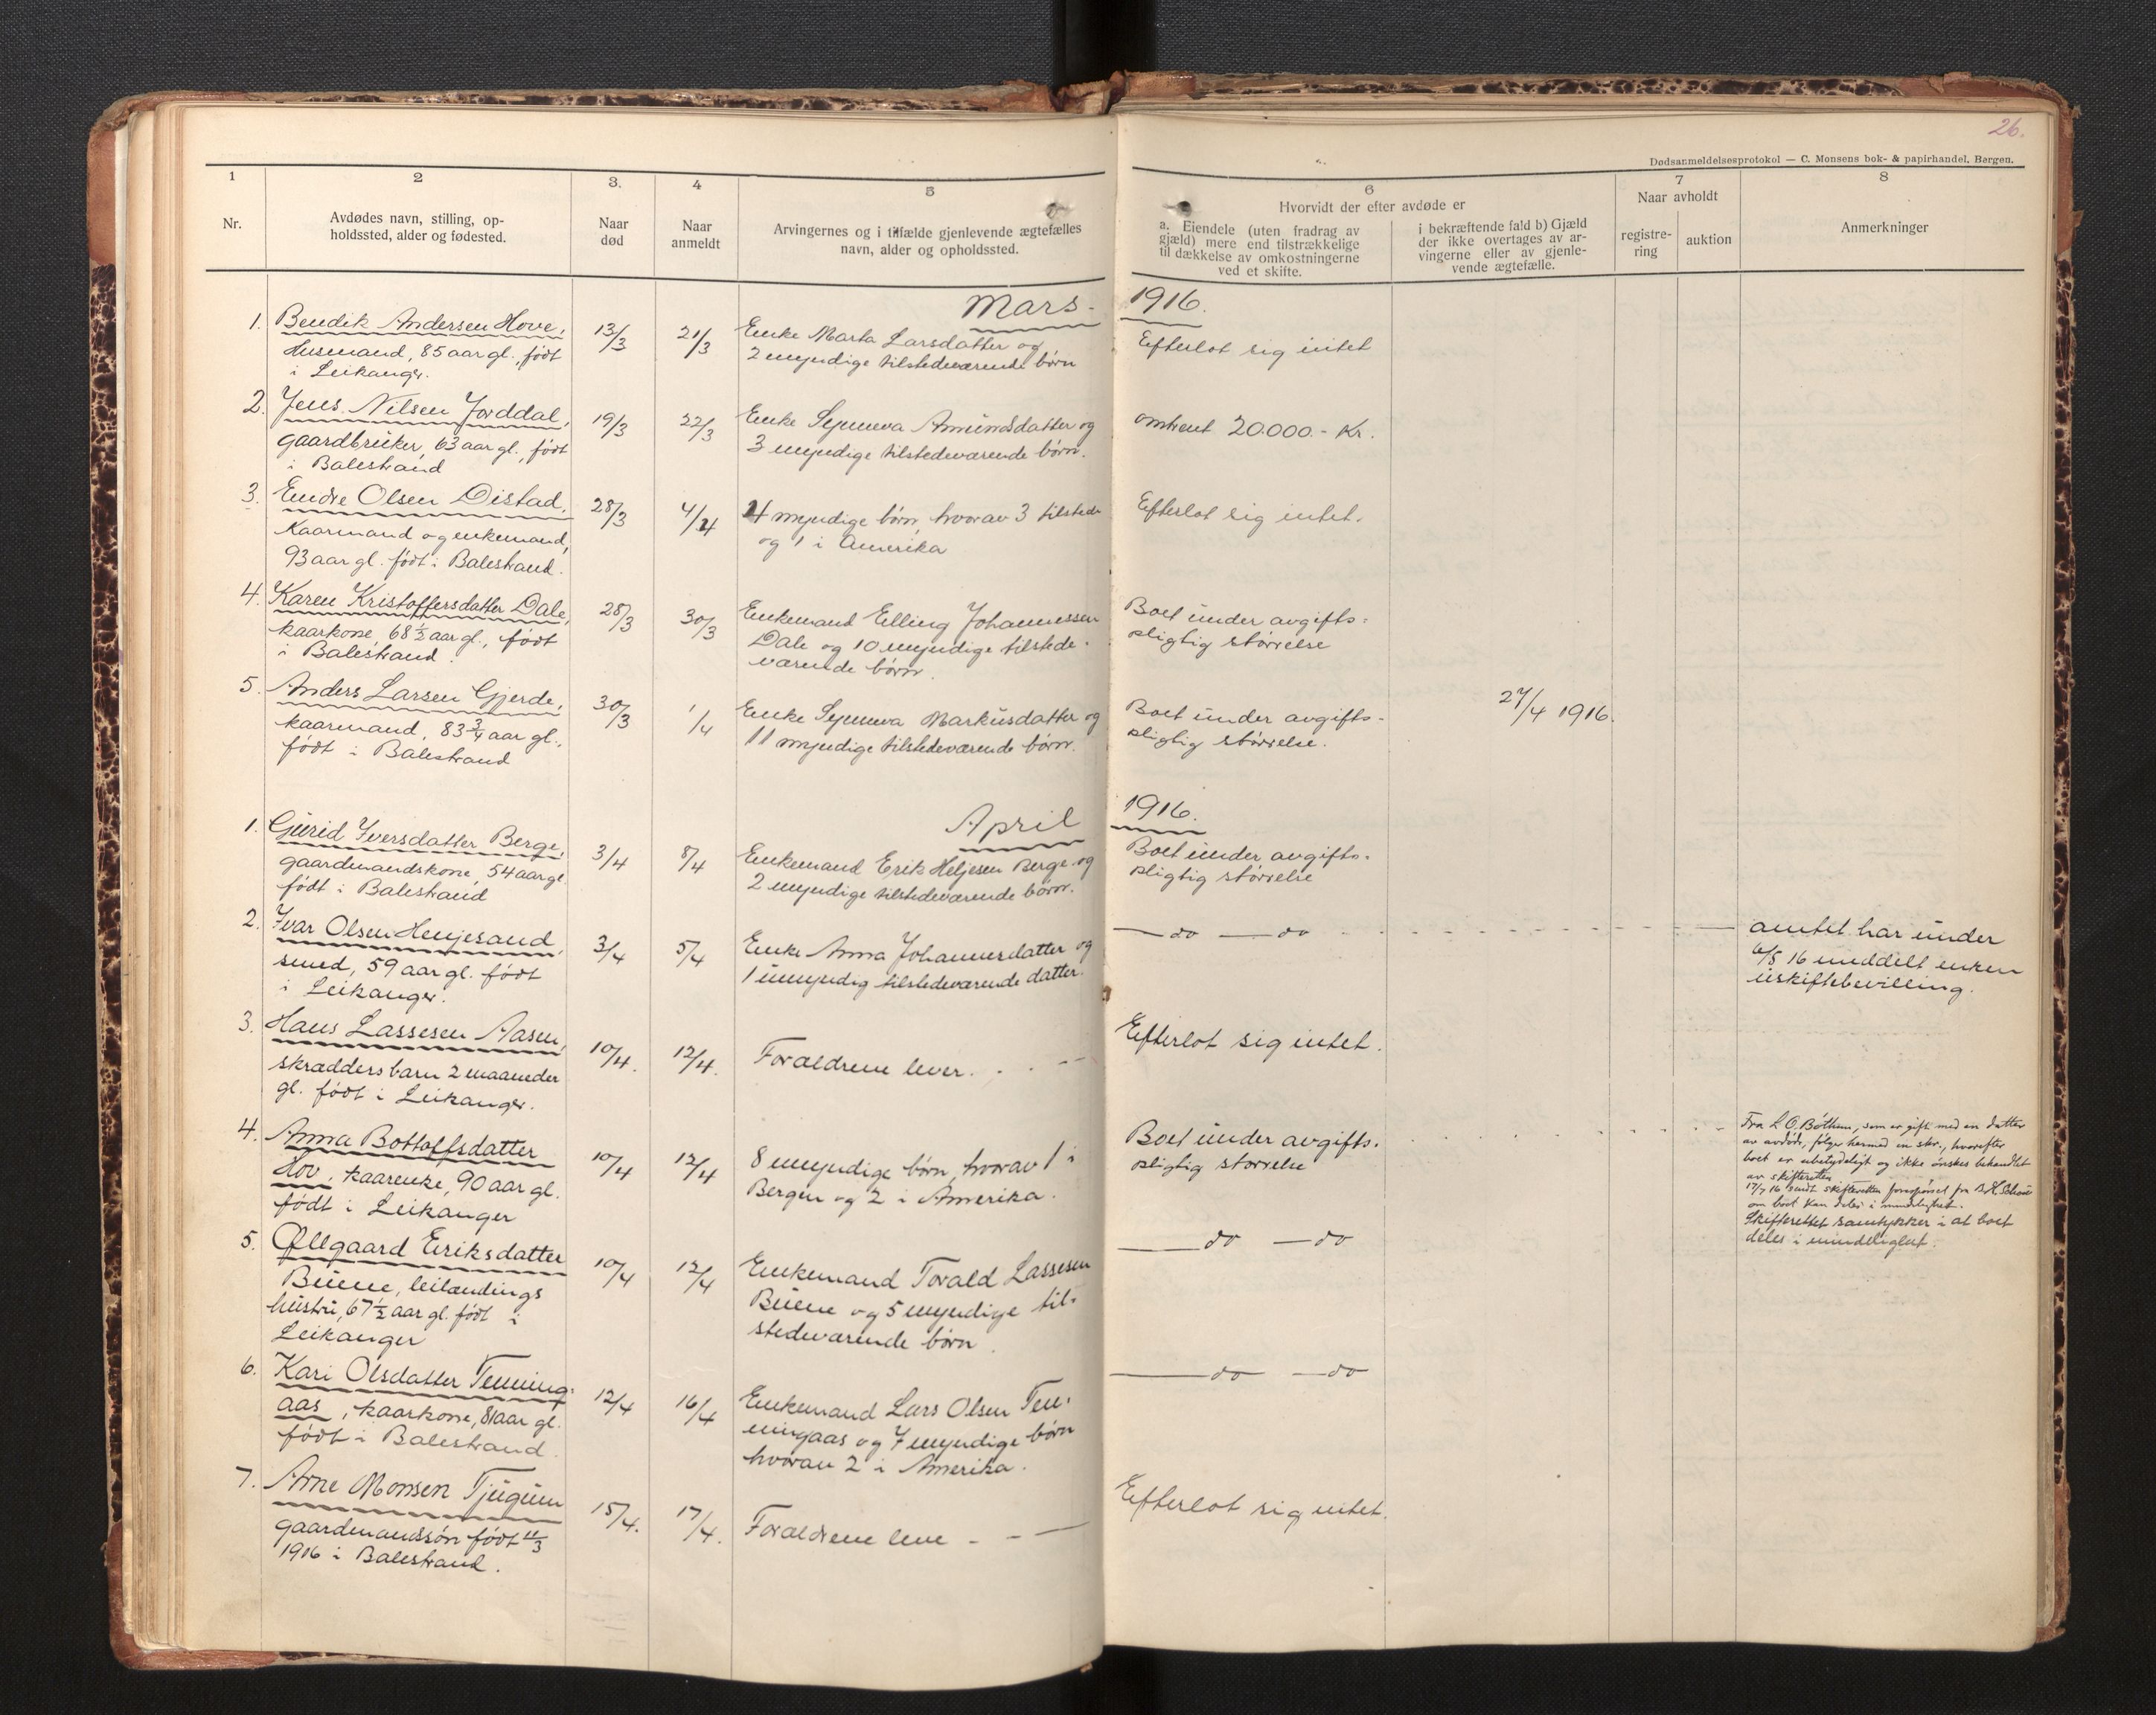 26.
Dødsanmeldelsesprotokol — C. Monsens bok- & papirhandel, Bergen.
1
Nr.
2
Avdødes navn, stilling, op-
holdssted, alder og fødested.
3.
Naar
død
4
Naar
anmeldt
5
Arvingernes og i tilfælde gjenlevende ægtefælles
navn, alder og opholdssted.
6
Hvorvidt der efter avdøde er
a. Eiendele (uten fradrag av
gjæld) mere end tilstrækkelige
til dækkelse av omkostningerne
ved et skifte.
i bekræftende fald b) Gjæld
der ikke overtages av ar-
vingerne eller av gjenle-
vende ægtefælle.
7
Naar avholdt
registre-
ring
auktion
8
Anmerkninger
Mars - 1916.
1. Bendik Andersen Hove,
Husmand, 85 aar gl., født
i Leikanger.
13/3
21/3
Enke Marta Larsdatter og
2 myndige tilstedeværende børn
Efterlot sig intet
2. Jens Nilsen Jorddal,
gaardbruker, 63 aar gl., født
i Balestrand
19/3
22/3
Enke Synneva Amundsdatter og
3 myndige tilstedeværende børn.
omtrent 20.000.- Kr.
3. Endre Olsen Distad,
Kaarmand og enkemand,
93 aar gl. født i Balestrand.
28/3
4/4
4 myndige børn, hvorav 3 tilstede
og 1 i Amerika
Efterlot sig intet.
4. Karen Kristoffersdatter Dale,
kaarkone, 68 1/2 aar gl., født
i Balestrand.
28/3
30/3
Enkemand Elling Johannessen
Dale og 10 myndige tilstede-
værende børn.
Boet under avgifts-
pligtig størrelse
5. Anders Larsen Gjerde,
kaarmand, 83 3/4 aar gl.,
født i Balestrand
30/3
1/4
Enke Synneva Markusdatter og
11 myndige tilstedeværende børn.
Boet under avgifts-
pligtig størrelse.
27/4 1916.
April 1916.
1. Gurid Iversdatter Berge,
gaardmandskone, 54 aar gl
født i Balestrand
3/4
8/4
Enkemand Erik Heljesen Berge og
2 myndige tilstedeværende børn.
Boet under avgifts-
pligtig størrelse
2. Ivar Olsen Henjesand,
smed, 59 aar gl. født
i Leikanger.
3/4
5/4
Enke Anna Johannesdatter og
1 umyndig tilstedeværende datter.
— do — do
amtet har under
6/5 16 meddelt enken
uskiftebevilling.
3. Hans Lassesen Aasen,
skrædders barn 2 maaneder
gl. født i Leikanger.
10/4.
12/4.
Forældrene lever.
Efterlot sig intet.
4. Anna Bottolfsdatter
Hov, kaarenke, 90 aar gl.
født i Leikanger
10/4
12/4
8 myndige børn, hvorav 1 i
Bergen og 2 i Amerika.
Boet under avgifts-
pligtig størrelse
Fra L. O. Bøthun, som er gift med en datter
av avdøde, følger hermed en skr., hvorefter
boet er ubetydeligt og ikke ønskes behandlet
av skifteretten
17/7 16 sendt skifteretten forespørsel fra B. H.
om boet kan deles i mindelighet.
Skifteretten samtykker i at boet
deles i mindelighet.
5. Ollgaard Eriksdatter
Buene, leilændings
hustru, 67 1/2 aar gl. født i
Leikanger
10/4
12/4
Enkemand Torald Lassesen
Buene og 5 myndige til-
stedeværende børn.
— do — do
6. Kari Olsdatter Tenning-
aas, kaarkone, 81 aar gl.
født i Balestrand.
12/4
16/4
Enkemand Lars Olsen Ten-
ningaas og 7 myndige børn
hvorav 2 i Amerika.
— do — do
7. Arne Monsen Tjugum
gaardmandssøn født 11/3
1916 i Balestrand.
15/4.
17/4.
Forældrene leve - - —
Efterlot sig intet.